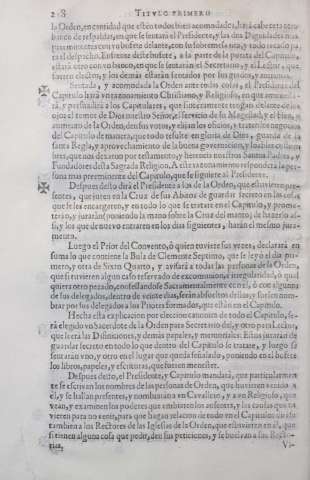 28 TITVLO PRIMERO
la Orden, en cantidad que estèn todos bien acomodados, hará cabecera otro
banco de respaldar, en que se sentará el Presidente, y las dos Dignidades mas
preeminentes con vn bufete delante, con su sobremesa, y todo recado
para el despacho. Enfrente deste bufete, a la parte de la puerta del Capitulo,
estará otro con vn banco, en que se sentarán el Secretario, y el Lector, que
fueren electos, y los demàs estarán sentados por sus grados, y antiguas.
Sentada, y acomodada la Orden ante todas cosas, el Presidente del
Capitulo hará vn razonamiento Christiano, y Religioso, en que amonesta-
rá, y persuadirá a los Capitulares, que sinceramente tengan delante de los
ojos el temor de Dios nuestro Señor, el servicio de su Magestad, y el bien,
aumento de la Orden, den sus votos, y elijan los oficios, y traten los negocios
del Capitulo de manera, que todo resulte en gloria de Dios, guarda de la
santa Regla, y aprovechamiento de la buena governacion, y loables costum-
bres, que nos dexaron por testamento, y herencia nuestros Santos Padres, y
Fundadores desta Sagrada Religion. A este razonamiento responderá la per-
sona mas preeminente del Capitulo, que se siguiere al Presidente.
Despues desto dirá el Presidente a los de la Orden, que estuvieren pre-
sentes, que juren en la Cruz de sus Abitos de guardar secreto en las cosas
que se les encargaren, y en todo lo que se tratare en el Capitulo, y prome-
terán, y jurarán poniendo la mano sobre la Cruz del manto, de hazerlo as-
si, y los que de nuevo entraren en los dias siguientes, harán el mesmo jura-
mento.
Luego el Prior del Convento, ó quien tuviere sus vezes, declarará en
suma lo que contiene la Bula de Clemente Septimo, que se leyó el dia pri-
mero, y otra de Sixto Quarto, y avisará a todas las personas de la Orden,
que si tuvieren algun caso reservado de excomunion, irregularidad, ó qual-
quiera otro pecado, confessandose Sacramentalmente con el, ó con alguno
de sus delegados, dentro de veinte dias, serán absueltos dellos, y suelen nom-
brar por sus delegados a los Priores formados, que están en el Capitulo.
Hecha esta explicacion por eleccion canonica de todo el Capitulo, se-
rá elegido vn Sacerdote de la Orden para Secretario del, y otro para Lector,
que leerá las Difiniciones, y demàs papeles, y memoriales: Estos jurarán de
guardar secreto en todo lo que dentro del Capitulo se tratare, y luego se
sentarán vno, y otro en el lugar que queda señalado, poniendo en el bufete
los libros, papeles, y escrituras, que fueren menester.
Despues desto, el Presidente, y Capitulo mandará, que particularmen-
te se escrivan los nombres de las personas de Orden, que huvieren venido a
el, y se hallan presentes, y nombrarán a vn Cavallero, y a vn Religioso, que
vean, y examinen los poderes que embiaren los ausentes, y las causas que tu-
vieren para no venir, para que hagan relacion de todo en el Capitulo: dirán
tambien a los Rectores de las Iglesias de la Orden, que estuvieren en el, que
si tienen alguna cosa que pedir, den sus peticiones, y se buelvan a sus Recto-
rias. Vi-